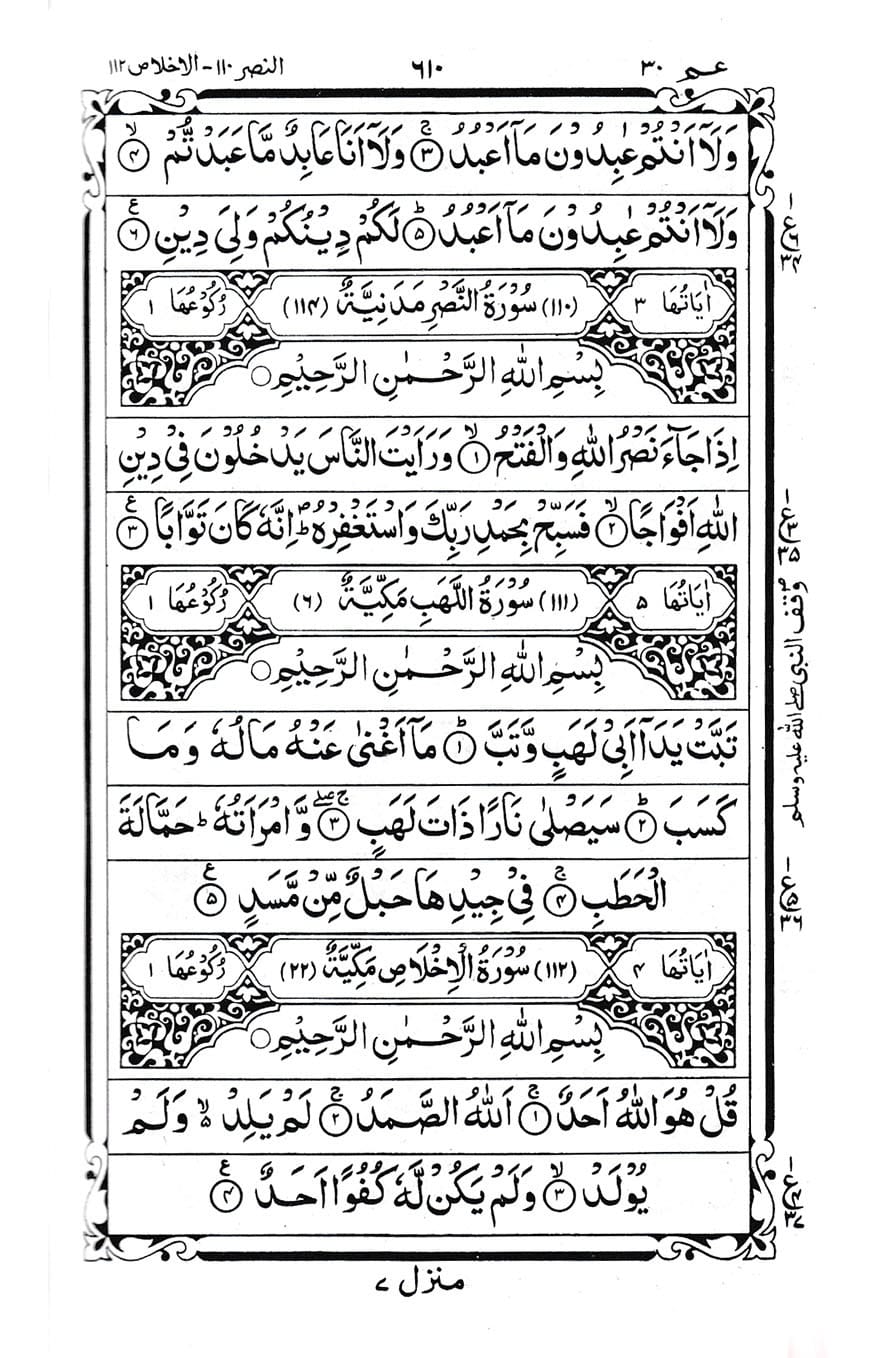 عم ٣٠
٦١٠
النصر ١١٠ - الاخلاص ١١٢
وَلَاۤ اَنۡتُمۡ عٰبِدُوۡنَ مَاۤ اَعۡبُدُ ۚ﴿۳﴾ وَلَاۤ اَنَا عَابِدٌ مَّا عَبَدۡتُّمۡ ۙ﴿۴﴾
وَلَاۤ اَنۡتُمۡ عٰبِدُوۡنَ مَاۤ اَعۡبُدُ ؕ﴿۵﴾ لَكُمۡ دِيۡنُكُمۡ وَلِىَ دِيۡنِ ﴿۶﴾ ع
اٰيَاتُهَا ٣
(١١٠) سُوۡرَةُ النَّصۡرِ مَدَنِيَّةٌ (١١۴)
رُكُوۡعُهَا ١
بِسۡمِ اللّٰهِ الرَّحۡمٰنِ الرَّحِيۡمِ ○
اِذَا جَآءَ نَصۡرُ اللّٰهِ وَالۡفَتۡحُ ۙ﴿۱﴾ وَرَاَيۡتَ النَّاسَ يَدۡخُلُوۡنَ فِىۡ دِيۡنِ
اللّٰهِ اَفۡوَاجًا ۙ﴿۲﴾ فَسَبِّحۡ بِحَمۡدِ رَبِّكَ وَاسۡتَغۡفِرۡهُ ؕ اِنَّهٗ كَانَ تَوَّابًا ﴿۳﴾ ع
اٰيَاتُهَا ۵
(١١١) سُوۡرَةُ اللَّهَبِ مَكِّيَّةٌ (۶)
رُكُوۡعُهَا ١
بِسۡمِ اللّٰهِ الرَّحۡمٰنِ الرَّحِيۡمِ ○
تَبَّتۡ يَدَاۤ اَبِىۡ لَهَبٍ وَّتَبَّ ؕ﴿۱﴾ مَاۤ اَغۡنٰى عَنۡهُ مَالُهٗ وَمَا
كَسَبَ ؕ﴿۲﴾ سَيَصۡلٰى نَارًا ذَاتَ لَهَبٍ ۚۖ﴿۳﴾ وَّامۡرَاَتُهٗ ؕ حَمَّالَةَ
الۡحَطَبِ ۚ﴿۴﴾ فِىۡ جِيۡدِهَا حَبۡلٌ مِّنۡ مَّسَدٍ ﴿۵﴾ ع
اٰيَاتُهَا ۴
(١١٢) سُوۡرَةُ الۡاِخۡلَاصِ مَكِّيَّةٌ (٢٢)
رُكُوۡعُهَا ١
بِسۡمِ اللّٰهِ الرَّحۡمٰنِ الرَّحِيۡمِ ○
قُلۡ هُوَ اللّٰهُ اَحَدٌ ۚ﴿۱﴾ اَللّٰهُ الصَّمَدُ ۚ﴿۲﴾ لَمۡ يَلِدۡ ۙ۬ وَلَمۡ
يُوۡلَدۡ ۙ﴿۳﴾ وَلَمۡ يَكُنۡ لَّهٗ كُفُوًا اَحَدٌ ﴿۴﴾ ع
وقف النبی صلی اللہ علیہ وسلم
منزل ۷